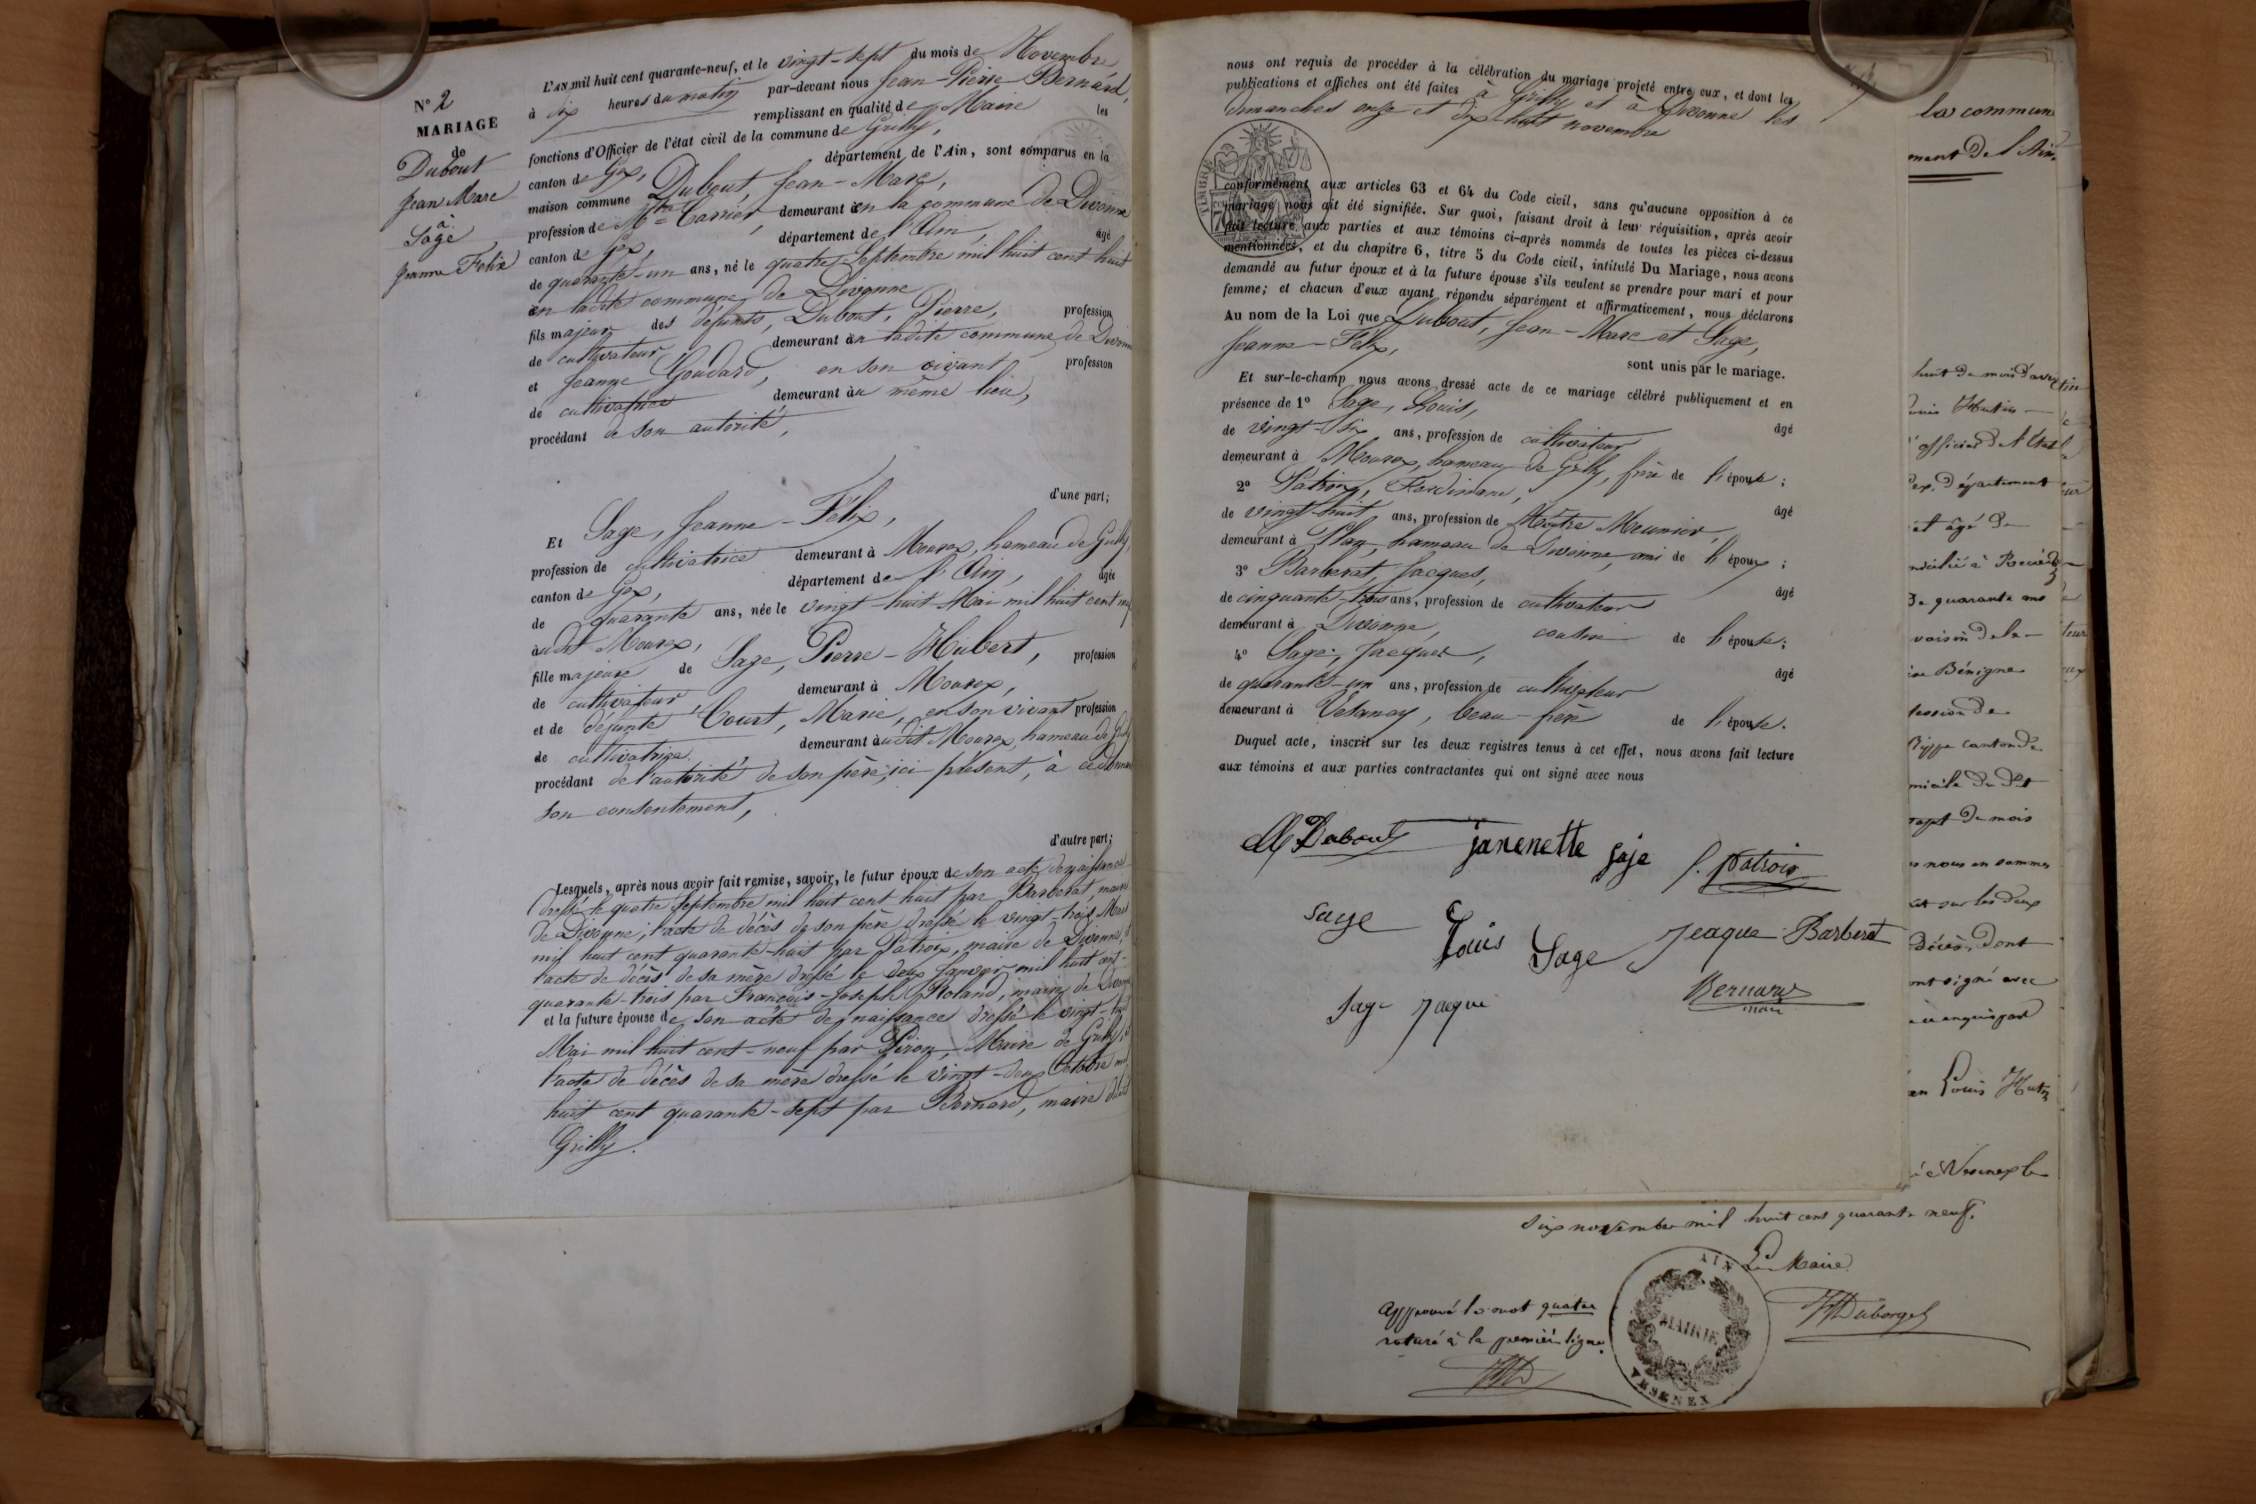 N° 2
MARIAGE
de
Dubout
Jean Marc
à
Sage
Jeanne Felix
L'AN mil huit cent quarante-neuf, et le vingt-sept du mois de Novembre
à dix heures du matin par-devant nous Jean-Pierre Bernard,
remplissant en qualité de Maire les
fonctions d'Officier de l'état civil de la commune de Grilly,
canton de Gex, département de l'Ain, sont comparus en la
maison commune Dubout, Jean-Marc,
profession de Mtre Carrier, demeurant en la commune de Divonne
canton de Gex, département de l'Ain, âgé
de quarante-un ans, né le quatre Septembre mil huit cent huit
en ladite commune de Divonne
fils majeur des défunts, Dubout, Pierre, profession
de cultivateur, demeurant en ladite commune de Divonne
et Jeanne Goudard, en son vivant profession
de cultivatrice demeurant au même lieu,
procédant de son autorité,
d'une part;
Et Sage, Jeanne-Félix,
profession de cultivatrice demeurant à Mourex, hameau de Grilly,
canton de Gex, département de l'Ain, âgée
de quarante ans, née le vingt-huit Mai mil huit cent neuf
audit Mourex,
fille majeure de Sage, Pierre-Hubert, profession
de cultivateur, demeurant à Mourex,
et de défunte Court, Marie, en son vivant profession
de cultivatrice, demeurant audit Mourex, hameau de Grilly
procédant de l'autorité de son père, ici présent, à ce donnant
son consentement,
d'autre part;
Lesquels, après nous avoir fait remise, savoir, le futur époux de son acte de naissance
dressé le quatre Septembre mil huit cent huit par Barberat, maire
de Divonne, l'acte de décès de son père dressé le vingt-trois Mars
mil huit cent quarante-huit par Patroix, maire de Divonne,
l'acte de décès de sa mère dressé le deux Janvier mil huit cent
quarante-trois par François-Joseph Roland, maire de Divonne
et la future épouse de son acte de naissance dressé le vingt-huit
Mai mil huit cent-neuf par Piron, Maire de Grilly,
l'acte de décès de sa mère dressé le vingt-deux Octobre mil
huit cent quarante-sept par Bernard, maire dudit
Grilly.
nous ont requis de procéder à la célébration du mariage projeté entre eux, et dont les
publications et affiches ont été faites à Grilly et à Divonne les
dimanches onze et dix-huit novembre
TIMBRE
conformément aux articles 63 et 64 du Code civil, sans qu'aucune opposition à ce
mariage nous ait été signifiée. Sur quoi, faisant droit à leur réquisition, après avoir
fait lecture aux parties et aux témoins ci-après nommés de toutes les pièces ci-dessus
mentionnées, et du chapitre 6, titre 5 du Code civil, intitulé Du Mariage, nous avons
demandé au futur époux et à la future épouse s'ils veulent se prendre pour mari et pour
femme; et chacun d'eux ayant répondu séparément et affirmativement, nous déclarons
Au nom de la Loi que Dubout, Jean-Marc et Sage,
Jeanne-Félix,
sont unis par le mariage.
Et sur-le-champ nous avons dressé acte de ce mariage célébré publiquement et en
présence de 1° Sage, Louis, âgé
de vingt-six ans, profession de cultivateur
demeurant à Mourex, hameau de Grilly, frère de l'épouse;
2° Patroix, Ferdinand, âgé
de vingt-huit ans, profession de Maître Meunier,
demeurant à Plan, hameau de Divonne, ami de l'époux;
3° Barberat, Jacques, âgé
de cinquante-trois ans, profession de cultivateur
demeurant à Divonne, cousin de l'épouse;
4° Sage, Jacques, âgé
de quarante-un ans, profession de cultivateur
demeurant à Vesancy, beau-frère de l'épouse.
Duquel acte, inscrit sur les deux registres tenus à cet effet, nous avons fait lecture
aux témoins et aux parties contractantes qui ont signé avec nous
M Dubout janenette saje f. patroix
sage Louis Sage Jeaque Barberat
Sage Jaque Bernard
maire
la commune
ment de l'Ain
huit du mois d'avril
officier de l'état
département
et âgé de
de quarante ans
voisin de la
Bénigne
fession de
canton de
micile du dit
sept du mois
nous en sommes
sur les deux
décès, dont
ont signé avec
en Louis Hutin
six novembre mil huit cent quarante neuf.
Le Maire
Duborget
Approuvé le mot quatre
raturé à la première ligne.
AIN
MAIRIE
VESENEX